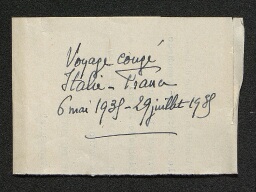 Voyage congé
Italie - France
6 mai 1935 - 29 juillet 1935